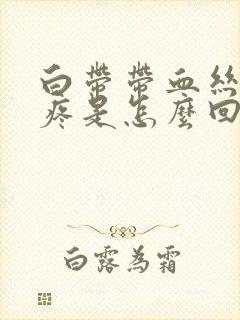 白帶帶血絲
疼是怎麼回
白露為霜